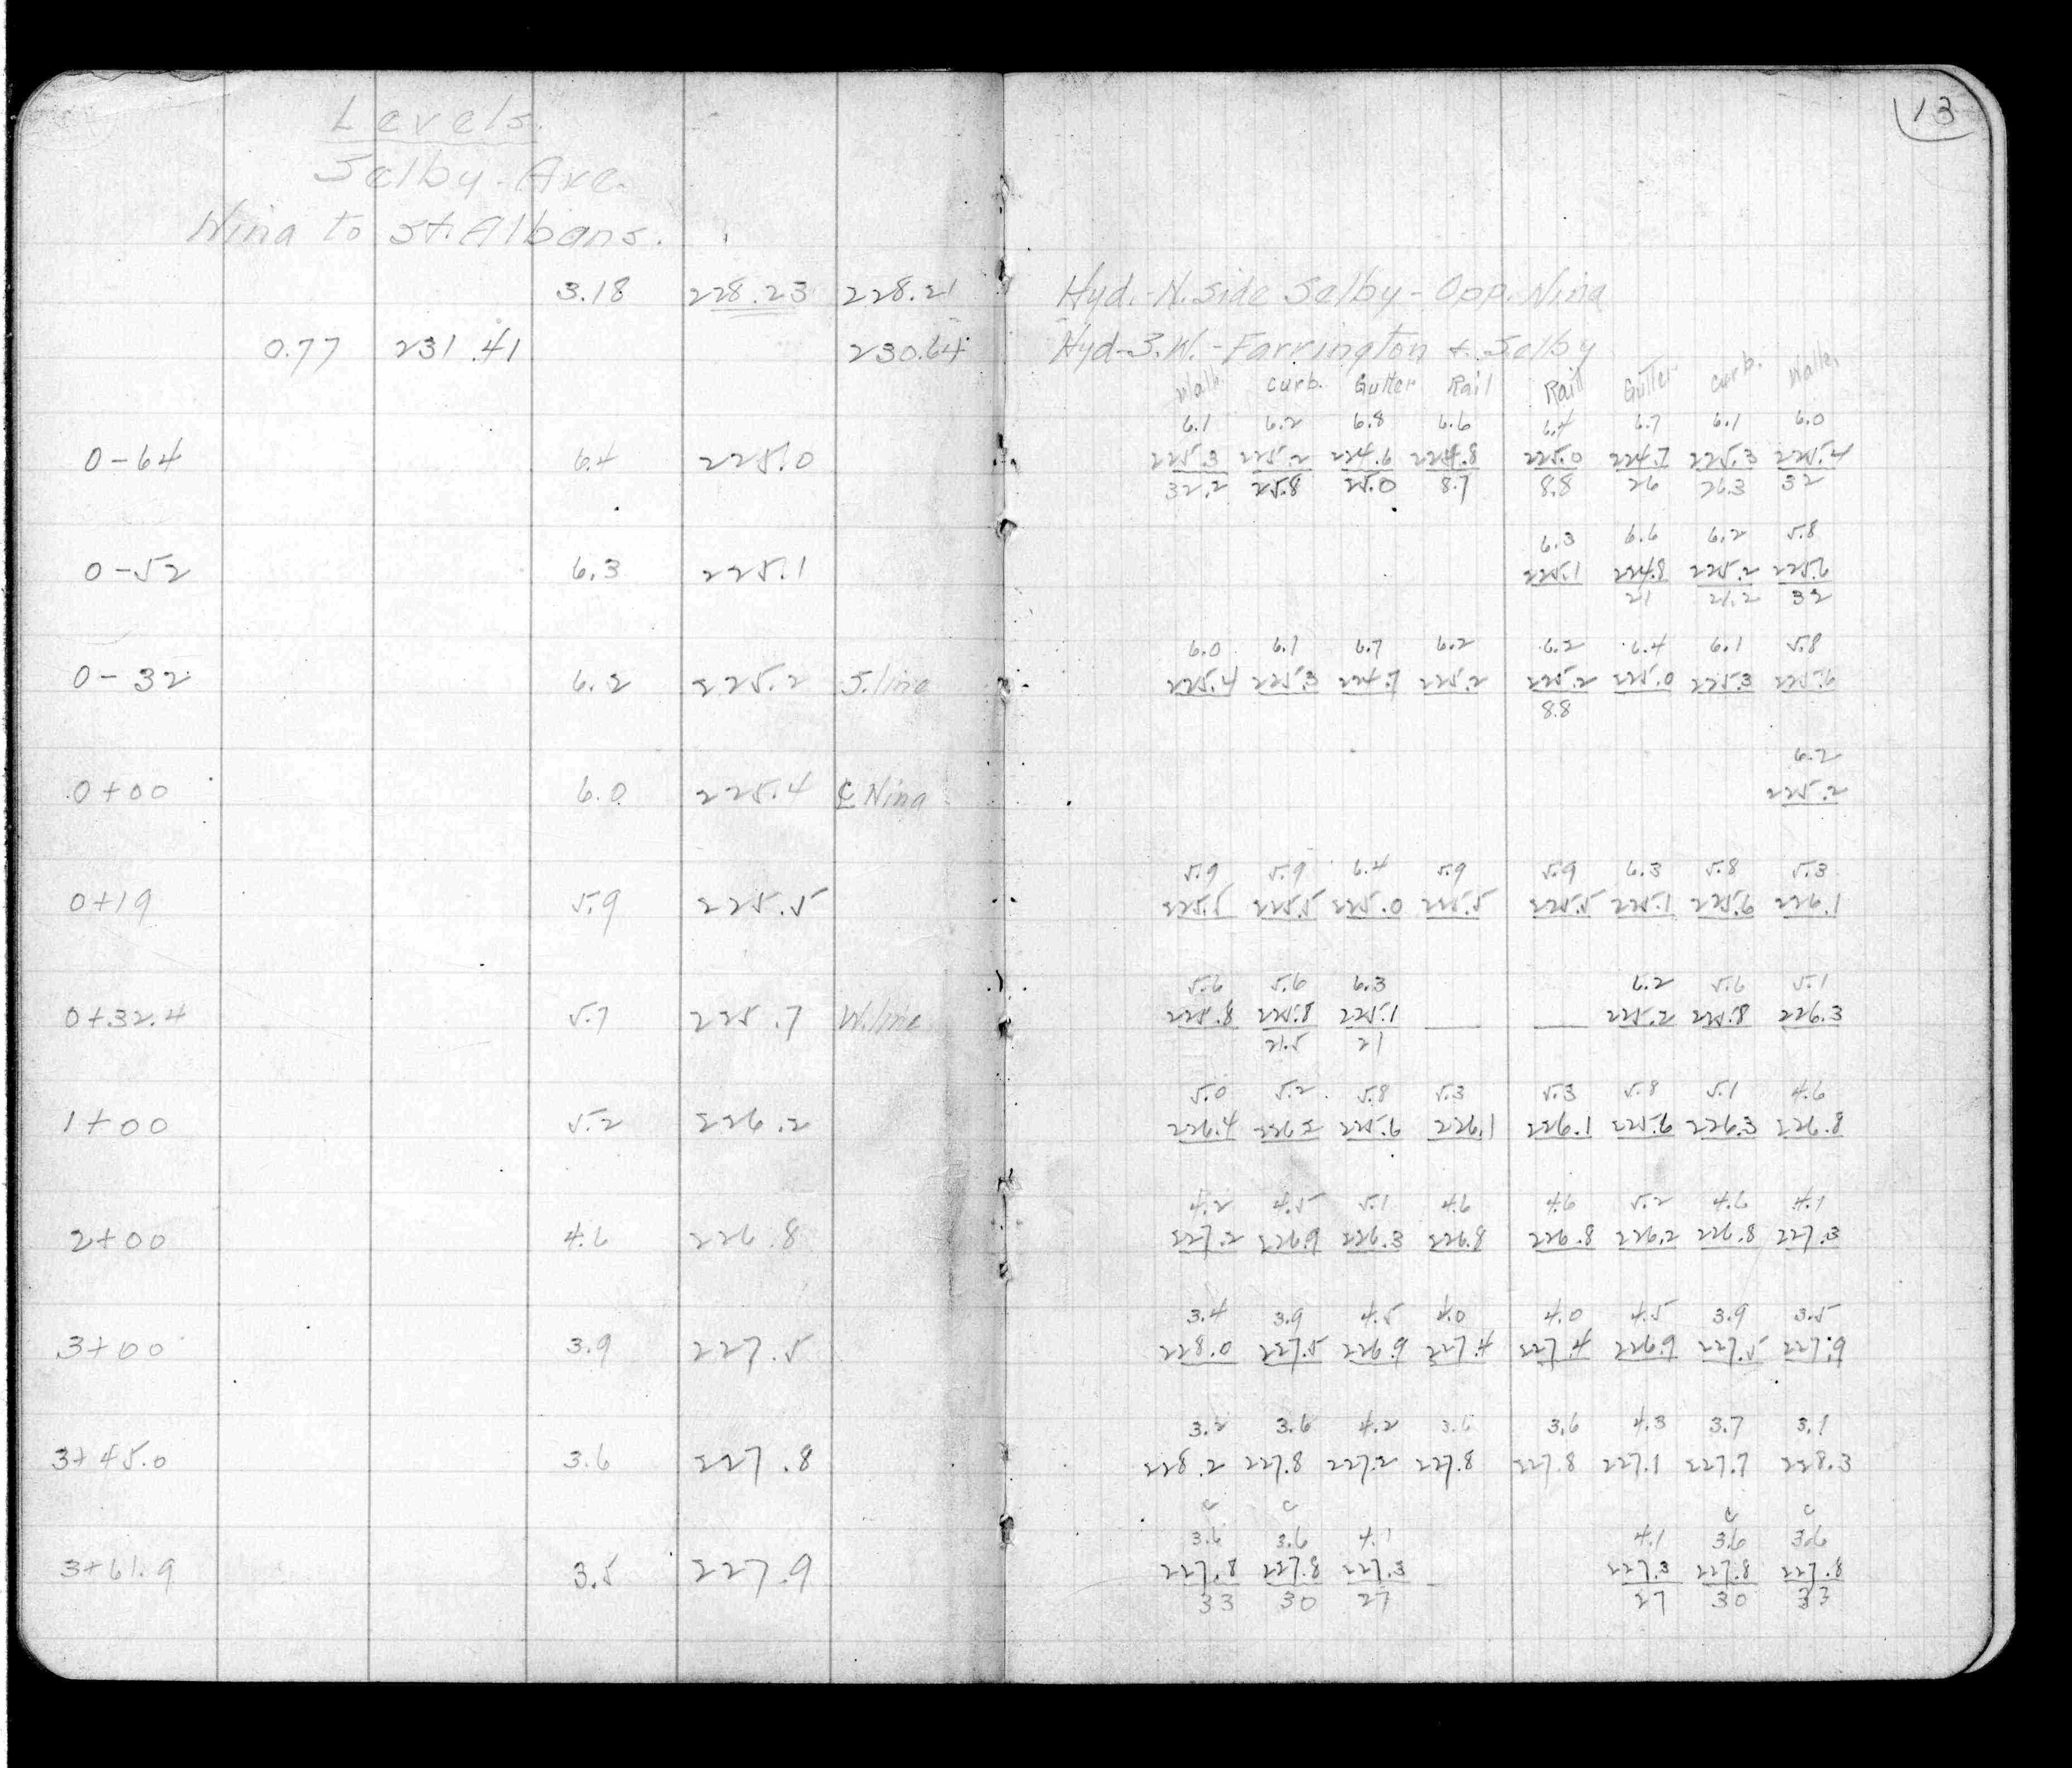 13
Levels.
Selby Ave.
Nina to St. Albans.
3.18 228.23 228.21 Hyd. - N. side Selby - Opp. Nina
0.77 231.41 230.64 Hyd - S.W. - Farrington & Selby
Walk. Curb. Gutter Rail Rail Gutter Curb. Walk
6.1 6.2 6.8 6.6 6.4 6.7 6.1 6.0
0-64 6.4 225.0 225.3 225.2 224.6 224.8 225.0 224.7 225.3 225.4
32.2 25.8 25.0 8.7 8.8 26 26.3 32
6.3 6.6 6.2 5.8
0-52 6.3 225.1 225.1 224.8 225.2 225.6
21 21.2 32
6.0 6.1 6.7 6.2 6.2 6.4 6.1 5.8
0-32 6.2 225.2 S. line 225.4 225.3 224.7 225.2 225.2 225.0 225.3 225.6
8.8
6.2
0+00 6.0 225.4 ℄ Nina 225.2
5.9 5.9 6.4 5.9 5.9 6.3 5.8 5.3
0+19 5.9 225.5 225.5 225.5 225.0 225.5 225.5 225.1 225.6 226.1
5.6 5.6 6.3 6.2 5.6 5.1
0+32.4 5.7 225.7 W. line 225.8 225.8 225.1 225.2 225.8 226.3
21.5 21
5.0 5.2 5.8 5.3 5.3 5.8 5.1 4.6
1+00 5.2 226.2 226.4 226.2 225.6 226.1 226.1 225.6 226.3 226.8
4.2 4.5 5.1 4.6 4.6 5.2 4.6 4.1
2+00 4.6 226.8 227.2 226.9 226.3 226.8 226.8 226.2 226.8 227.3
3.4 3.9 4.5 4.0 4.0 4.5 3.9 3.5
3+00 3.9 227.5 228.0 227.5 226.9 227.4 227.4 226.9 227.5 227.9
3.2 3.6 4.2 3.6 3.6 4.3 3.7 3.1
3+45.0 3.6 227.8 228.2 227.8 227.2 227.8 227.8 227.1 227.7 228.3
c c c c
3.6 3.6 4.1 4.1 3.6 3.6
3+61.9 3.5 227.9 227.8 227.8 227.3 227.3 227.8 227.8
33 30 27 27 30 33